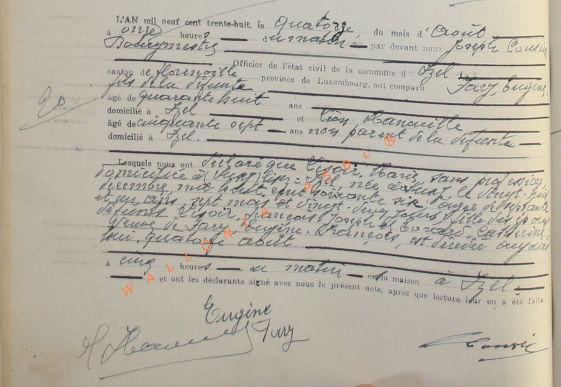 L'AN mil neuf cent trente-huit, le quatorze, du mois d'Août
à onze heures du matin par devant nous Joseph
Bourgmestre
Officier de l'état civil de la commune d'Izel
canton de Florenville province de Luxembourg, ont comparu Fary, Eugène,
fils de la défunte
20
âgé de quarante huit ans
domicilié à Izel et Léon
âgé de cinquante sept ans non parent de la défunte
domicilié à Izel.
Lesquels nous ont déclaré que Marie, sans profession,
domiciliée à Izel, née à le vingt trois
décembre, mil huit cent soixante six, âgée de septante
et un ans, sept mois et vingt deux jours, fille des époux
défunts François Joseph et Catherine,
veuve de Fary Eugène François, est décédée aujourd
hui, quatorze août
à cinq heures du matin en la maison à Izel
et ont les déclarants signé avec nous le présent acte, après que lecture leur en a été faite
WALLONIA ASBL ©
Eugène
Fary